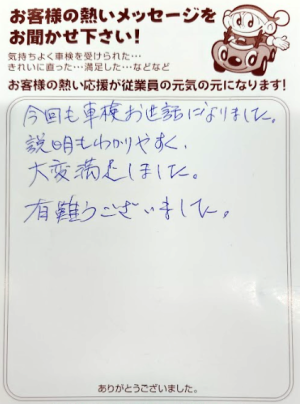 お客様の熱いメッセージを
お聞かせ下さい!
気持ちよく車検を受けられた…
きれいに直った…満足した…などなど
お客様の熱い応援が従業員の元気の元になります!
今回も車検お世話になりました。
説明もわかりやすく、
大変満足しました。
有難うございました。
ありがとうございました。